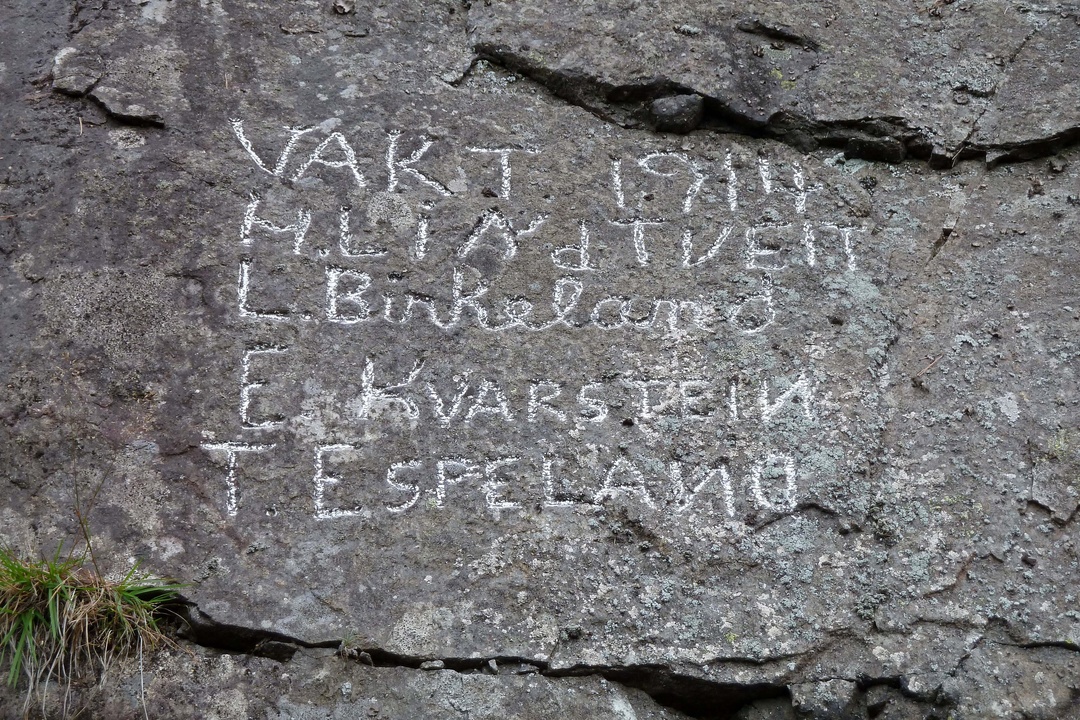 VAKT 1914
H. LINdTVEIT
L. Birkeland
E KVARSTEIN
T. ESPELAND